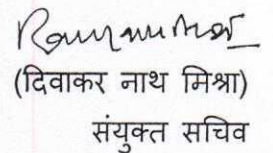 (दिवाकर नाथ मिश्रा)
संयुक्त सचिव